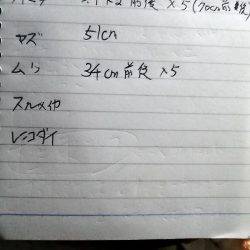 前後 ×5 (70cm前後)
ヤズ 51cm
ムツ 34cm前後 ×5
スルメイカ
レンコダイ